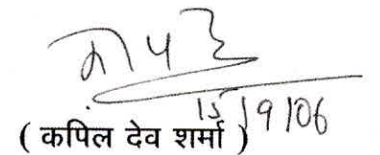 15/9/06
( कपिल देव शर्मा )